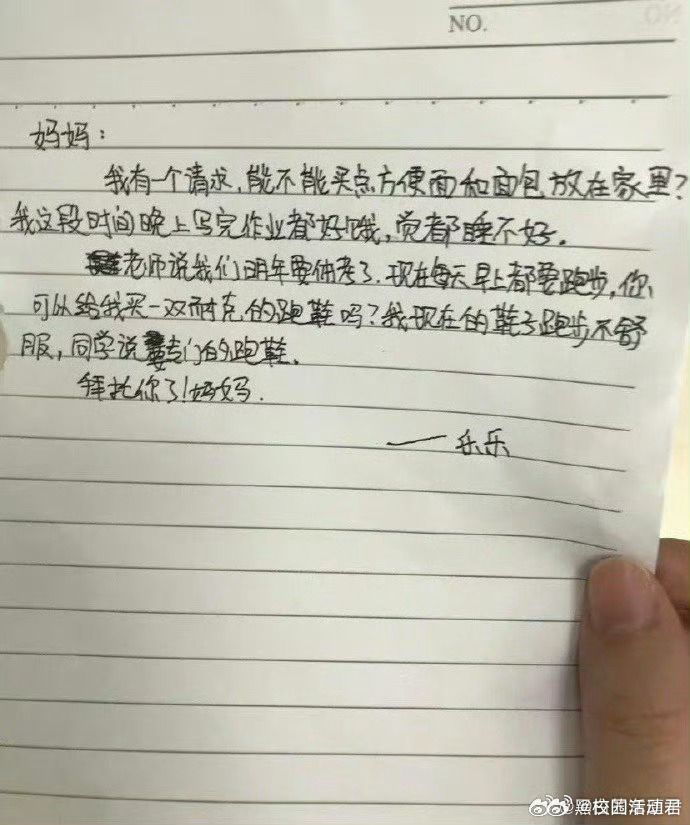 NO.
妈妈：
我有一个请求，能不能买点方便面和面包放在家里？
我这段时间晚上写完作业都好饿，觉都睡不好。
老师说我们明年要体考了，现在每天早上都要跑步，你
可以给我买一双耐克的跑鞋吗？我现在的鞋子跑步不舒
服，同学说要专门的跑鞋。
拜托你了！妈妈.
——乐乐
校园活动君